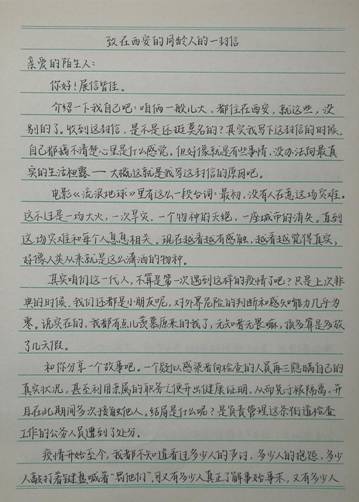 致在西安的同龄人的一封信
亲爱的陌生人:
你好!展信皆佳。
介绍一下我自己吧:咱俩一般儿大,都住在西安,就这些,没
别的了。收到这封信,是不是还挺莫名的?其实我写下这封信的时候,
自己都搞不清楚心里是什么感觉。但好像就是有些事情,没办法向最真
实的生活袒露——大概这就是我写这封信的原因吧。
电影《流浪地球》里有这么一段台词:最初,没有人在意这场灾难。
这不过是一场大火,一次旱灾,一个物种的灭绝,一座城市的消失。直到
这场灾难和每个人息息相关。现在越看越有感触,越看越觉得真实,
好像人类从来就是这么潇洒的物种。
其实咱们这一代人,不算是第一次遇到这样的疫情了吧?只是上次非
典的时候,我们还都是小朋友呢,对外界危险的判断和感知能力几乎为
零。说实在的,我都有点儿羡慕原来的我了,无知者无畏嘛,顶多算是多放
了几天假。
和你分享一个故事吧。一个疑似感染者向检查的人员再三隐瞒自己的
真实状况,甚至利用亲属的职务之便开出健康证明,从而免于被隔离,并
且在此期间多次接触他人,结局是什么呢?是负责管理这条街道检查
工作的公务人员遭到了处分。
疫情开始至今,我都不知道看过多少人的争讨,多少人的抱怨,多少
人敲打着键盘喊着"骂他们",可又有多少人真正了解事始事末,又有多少人